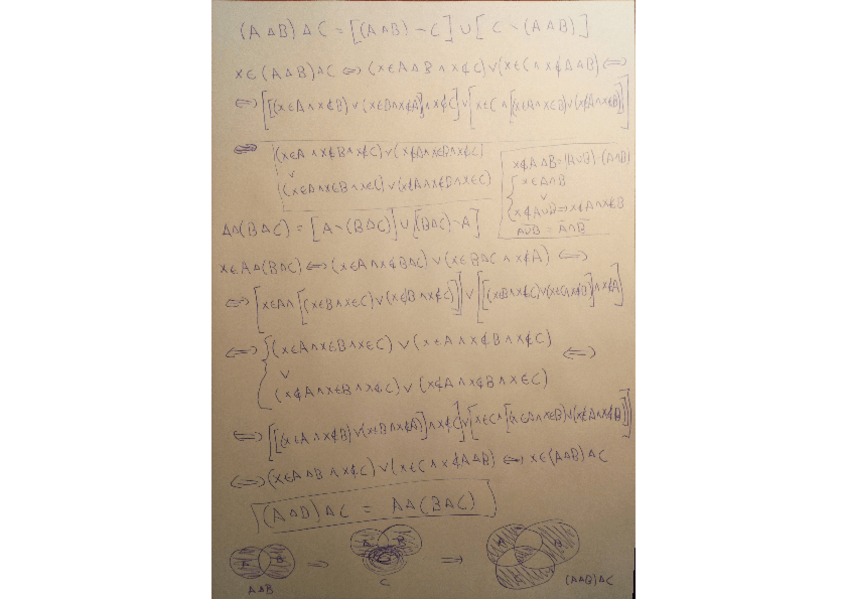 (A Δ B) Δ C = [(A Δ B) ∖ C] ∪ [C ∖ (A Δ B)]
x ∈ (A Δ B) Δ C ⇔ (x ∈ A Δ B ∧ x ∉ C) ∨ (x ∈ C ∧ x ∉ A Δ B) ⇔
⇔ [[(x ∈ A ∧ x ∉ B) ∨ (x ∈ B ∧ x ∉ A)] ∧ x ∉ C] ∨ [x ∈ C ∧ [(x ∈ A ∧ x ∈ B) ∨ (x ∉ A ∧ x ∉ B)]]
⇔ (x ∈ A ∧ x ∉ B ∧ x ∉ C) ∨ (x ∉ A ∧ x ∈ B ∧ x ∉ C)
∨
(x ∈ A ∧ x ∈ B ∧ x ∈ C) ∨ (x ∉ A ∧ x ∉ B ∧ x ∈ C)
x ∉ A Δ B = (A ∪ B) ∖ (A ∩ B)
x ∈ A ∩ B
∨
x ∉ A ∪ B ⇒ x ∉ A ∧ x ∉ B
A Δ (B Δ C) = [A ∖ (B Δ C)] ∪ [(B Δ C) ∖ A]
x ∈ A Δ (B Δ C) ⇔ (x ∈ A ∧ x ∉ B Δ C) ∨ (x ∈ B Δ C ∧ x ∉ A) ⇔
⇔ [x ∈ A ∧ [(x ∈ B ∧ x ∈ C) ∨ (x ∉ B ∧ x ∉ C)]] ∨ [[(x ∈ B ∧ x ∉ C) ∨ (x ∈ C ∧ x ∉ B)] ∧ x ∉ A]
⇔ { (x ∈ A ∧ x ∈ B ∧ x ∈ C) ∨ (x ∈ A ∧ x ∉ B ∧ x ∉ C)
∨ ⇔
(x ∉ A ∧ x ∈ B ∧ x ∉ C) ∨ (x ∉ A ∧ x ∉ B ∧ x ∈ C)
⇔ [[(x ∈ A ∧ x ∉ B) ∨ (x ∈ B ∧ x ∉ A)] ∧ x ∉ C] ∨ [x ∈ C ∧ [(x ∈ A ∧ x ∈ B) ∨ (x ∉ A ∧ x ∉ B)]]
⇔ (x ∈ A Δ B ∧ x ∉ C) ∨ (x ∈ C ∧ x ∉ A Δ B) ⇔ x ∈ (A Δ B) Δ C
(A Δ B) Δ C = A Δ (B Δ C)
A B ⇒ A B ⇒ A B
A Δ B C (A Δ B) Δ C